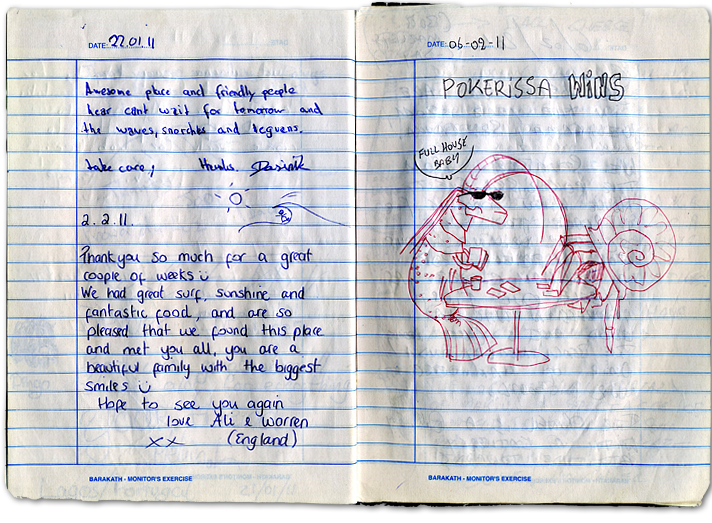 DATE: 22.01.11
Awesome place and friendly people
hear cant wait for tomorrow and
the waves, and
take care,
2.2.11.
Thank you so much for a great
couple of weeks
We had great surf, sunshine and
fantastic food, and are so
pleased that we found this place
and met you all, you are a
beautiful family with the biggest
smiles
Hope to see you again
love Ali & Warren
xx (England)
BARAKATH - MONITOR'S EXERCISE
DATE: 06-02-11
POKERISSA WINS
FULL HOUSE
BABY
BARAKATH - MONITOR'S EXERCISE